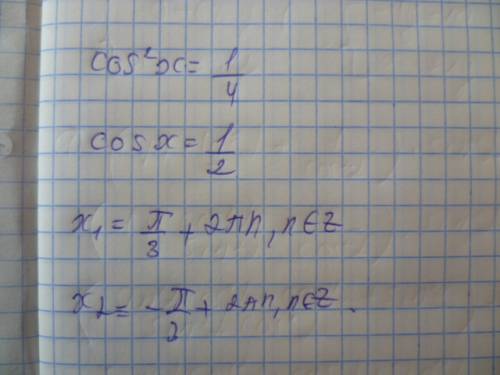 cos²x = 1/4
cos x = 1/2
x₁ = π/3 + 2πn, n∈Z
x₂ = -π/3 + 2πn, n∈Z.